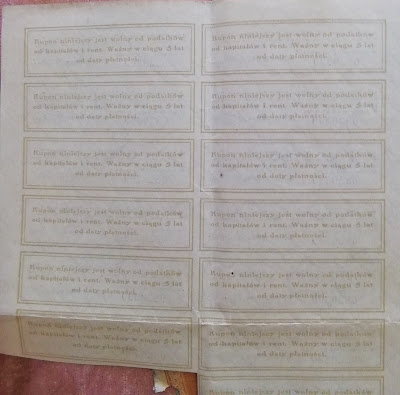 Kupon niniejszy jest wolny od podatków
od kapitałów i rent. Ważny w ciągu 5 lat
od daty płatności.
Kupon niniejszy jest wolny od podatków
od kapitałów i rent. Ważny w ciągu 5 lat
od daty płatności.
Kupon niniejszy jest wolny od podatków
od kapitałów i rent. Ważny w ciągu 5 lat
od daty płatności.
Kupon niniejszy jest wolny od podatków
od kapitałów i rent. Ważny w ciągu 5 lat
od daty płatności.
Kupon niniejszy jest wolny od podatków
od kapitałów i rent. Ważny w ciągu 5 lat
od daty płatności.
Kupon niniejszy jest wolny od podatków
od kapitałów i rent. Ważny w ciągu 5 lat
od daty płatności.
Kupon niniejszy jest wolny od podatków
od kapitałów i rent. Ważny w ciągu 5 lat
od daty płatności.
Kupon niniejszy jest wolny od podatków
od kapitałów i rent. Ważny w ciągu 5 lat
od daty płatności.
Kupon niniejszy jest wolny od podatków
od kapitałów i rent. Ważny w ciągu 5 lat
od daty płatności.
Kupon niniejszy jest wolny od podatków
od kapitałów i rent. Ważny w ciągu 5 lat
od daty płatności.
Kupon niniejszy jest wolny od podatków
od kapitałów i rent. Ważny w ciągu 5 lat
od daty płatności.
Kupon niniejszy jest wolny od podatków
od kapitałów i rent. Ważny w ciągu 5 lat
od daty płatności.
Kupon niniejszy jest wolny od podatków